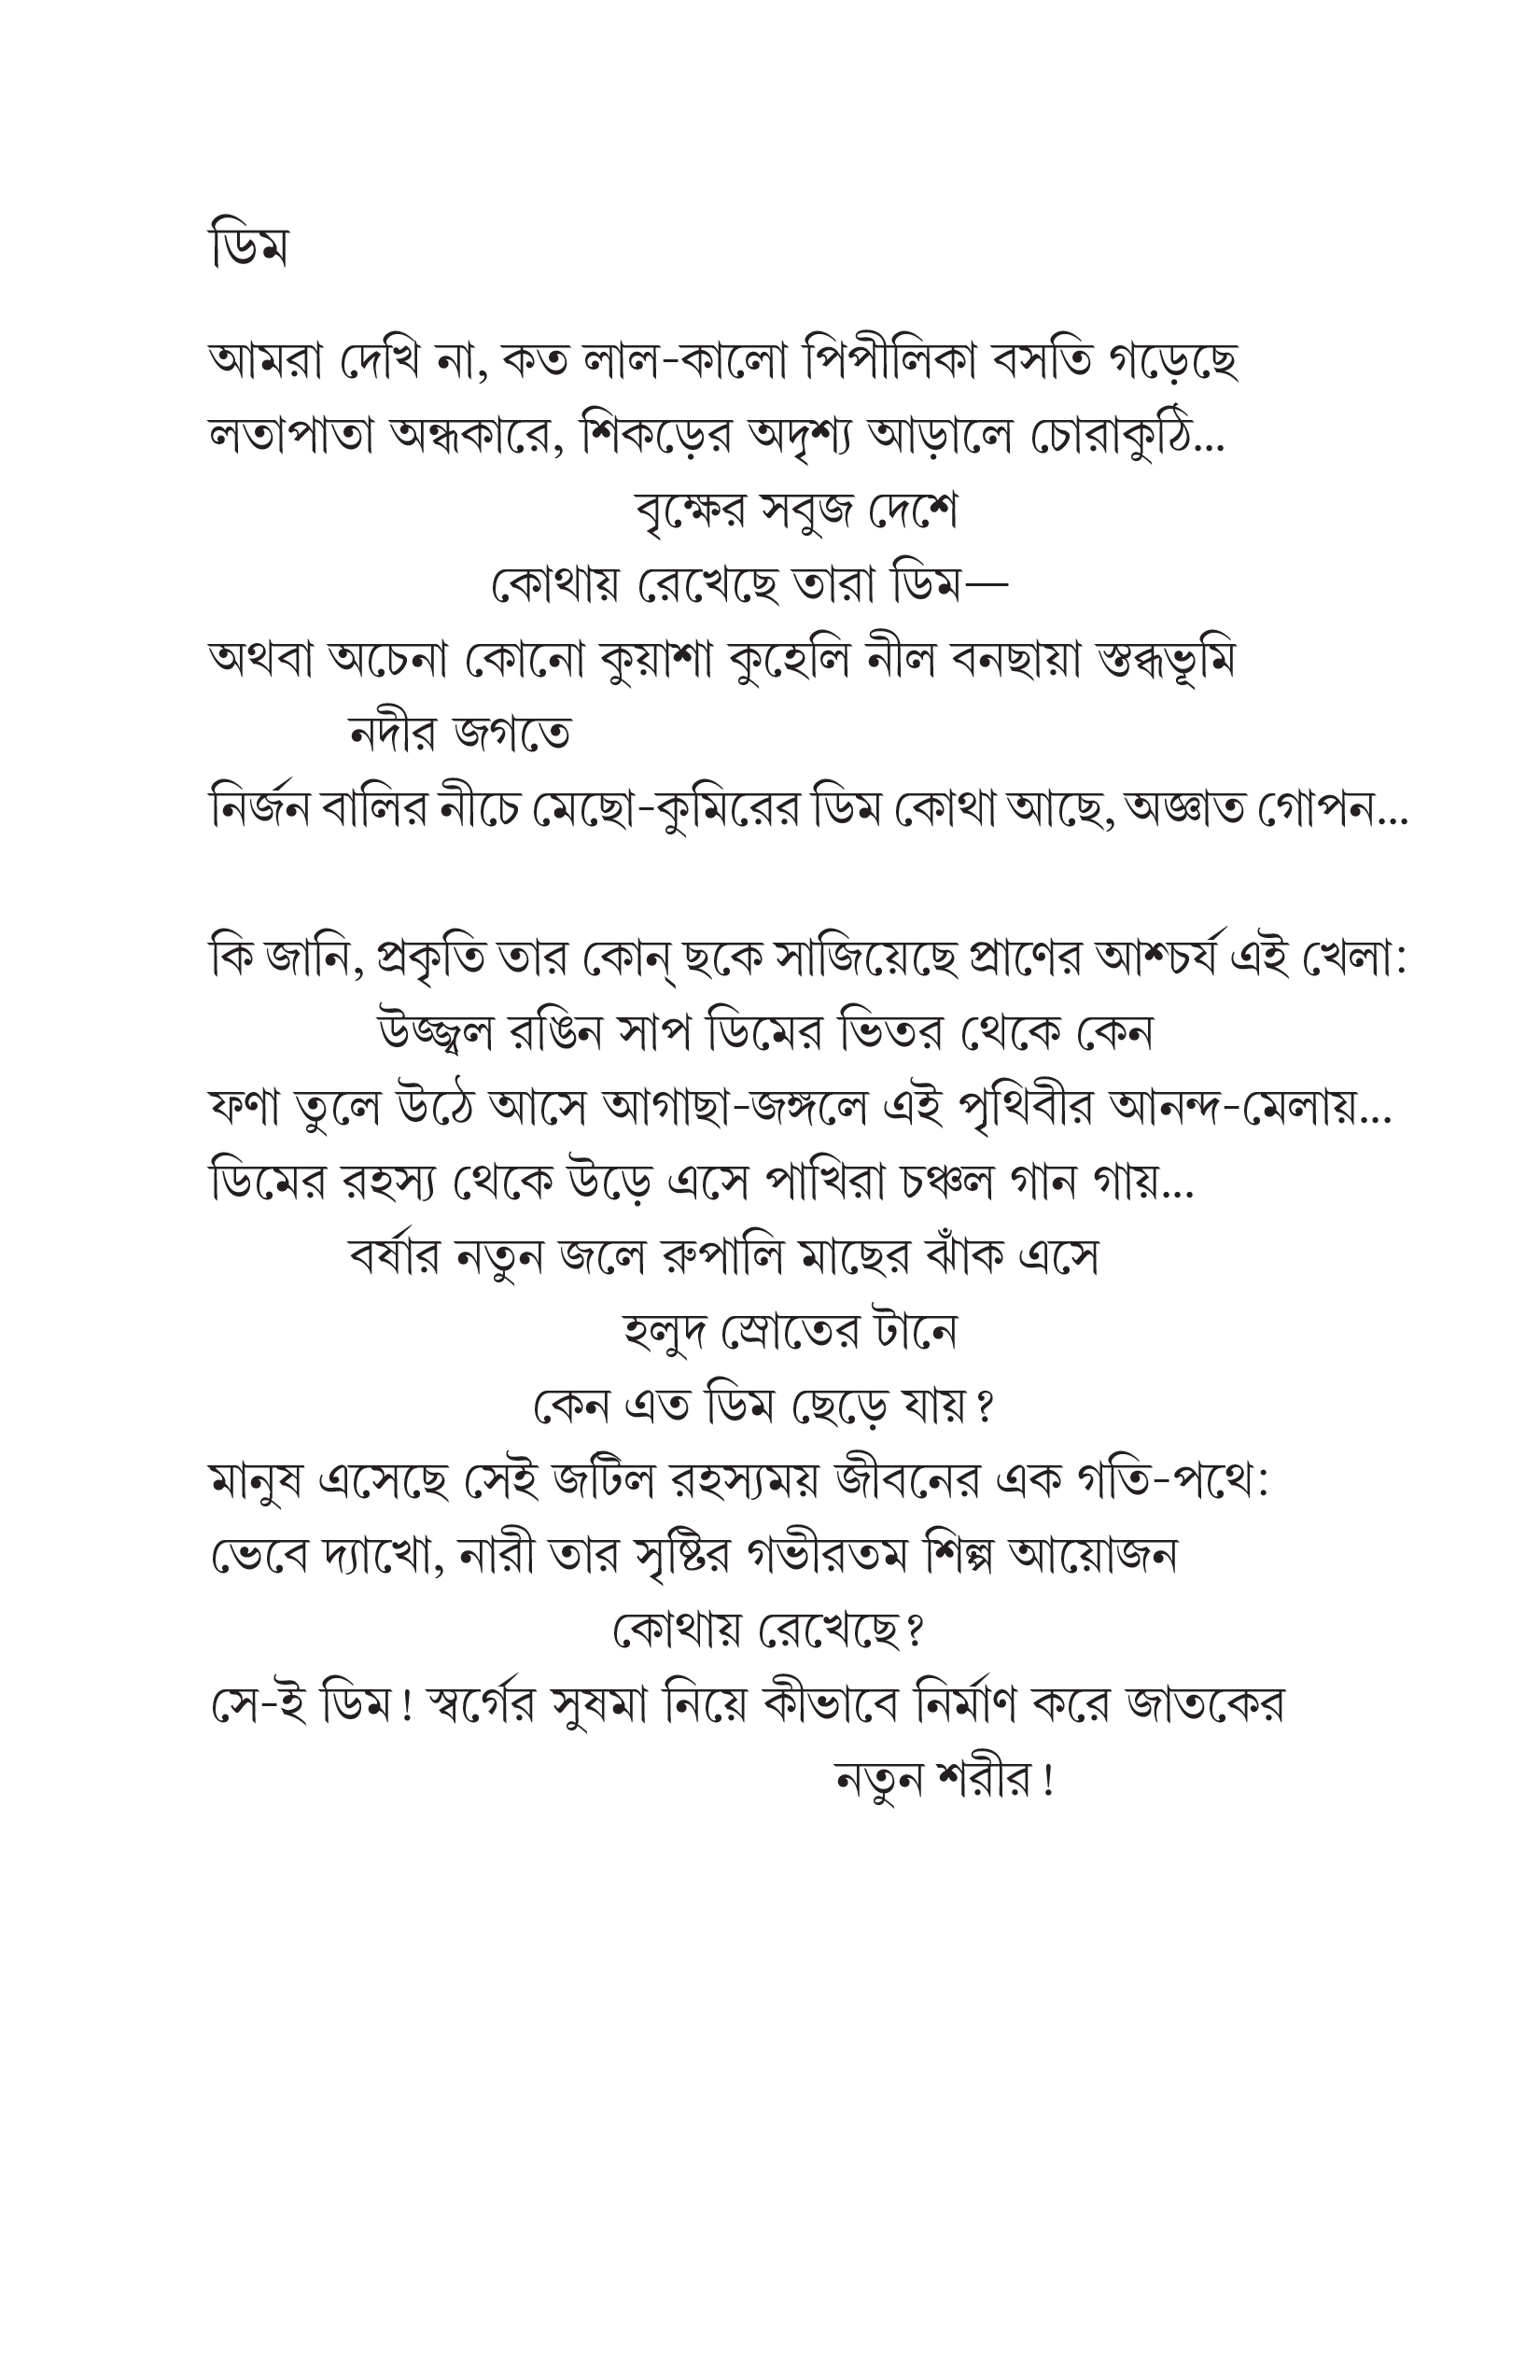 ডিম
আমরা দেখি না, কত লাল-কালো পিপীলিকা বসতি গড়েছে
লতাপাতা অন্ধকারে, শিকড়ের অদৃশ্য আড়ালে চোরাকুঠি...
বৃক্ষের সবুজ দেশে
কোথায় রেখেছে তারা ডিম—
অথবা অচেনা কোনো কুয়াশা কুহেলি নীল বনছায়া স্তব্ধভূমি
নদীর জগতে
নির্জন বালির নীচে মেছো-কুমিরের ডিম কোথা আছে, অজ্ঞাত গোপন...
কি জানি, প্রকৃতি তার কোন্ ছকে সাজিয়েছে প্রাণের আশ্চর্য এই খেলা:
উজ্জ্বল রঙিন সাপ ডিমের ভিতর থেকে কেন
ফণা তুলে উঠে আসে আগাছা-জঙ্গলে এই পৃথিবীর আনন্দ-মেলায়...
ডিমের রহস্য থেকে উড়ে এসে পাখিরা চঞ্চল গান গায়...
বর্ষার নতুন জলে রুপালি মাছের ঝাঁক এসে
হলুদ স্রোতের টানে
কেন এত ডিম ছেড়ে যায়?
মানুষ এসেছে সেই জটিল রহস্যময় জীবনের এক গতি-পথে:
ভেবে দ্যাখো, নারী তার সৃষ্টির গভীরতম শিল্প আয়োজন
কোথায় রেখেছে?
সে-ই ডিম! স্বর্গের সুষমা নিয়ে কীভাবে নির্মাণ করে জাতকের
নতুন শরীর!